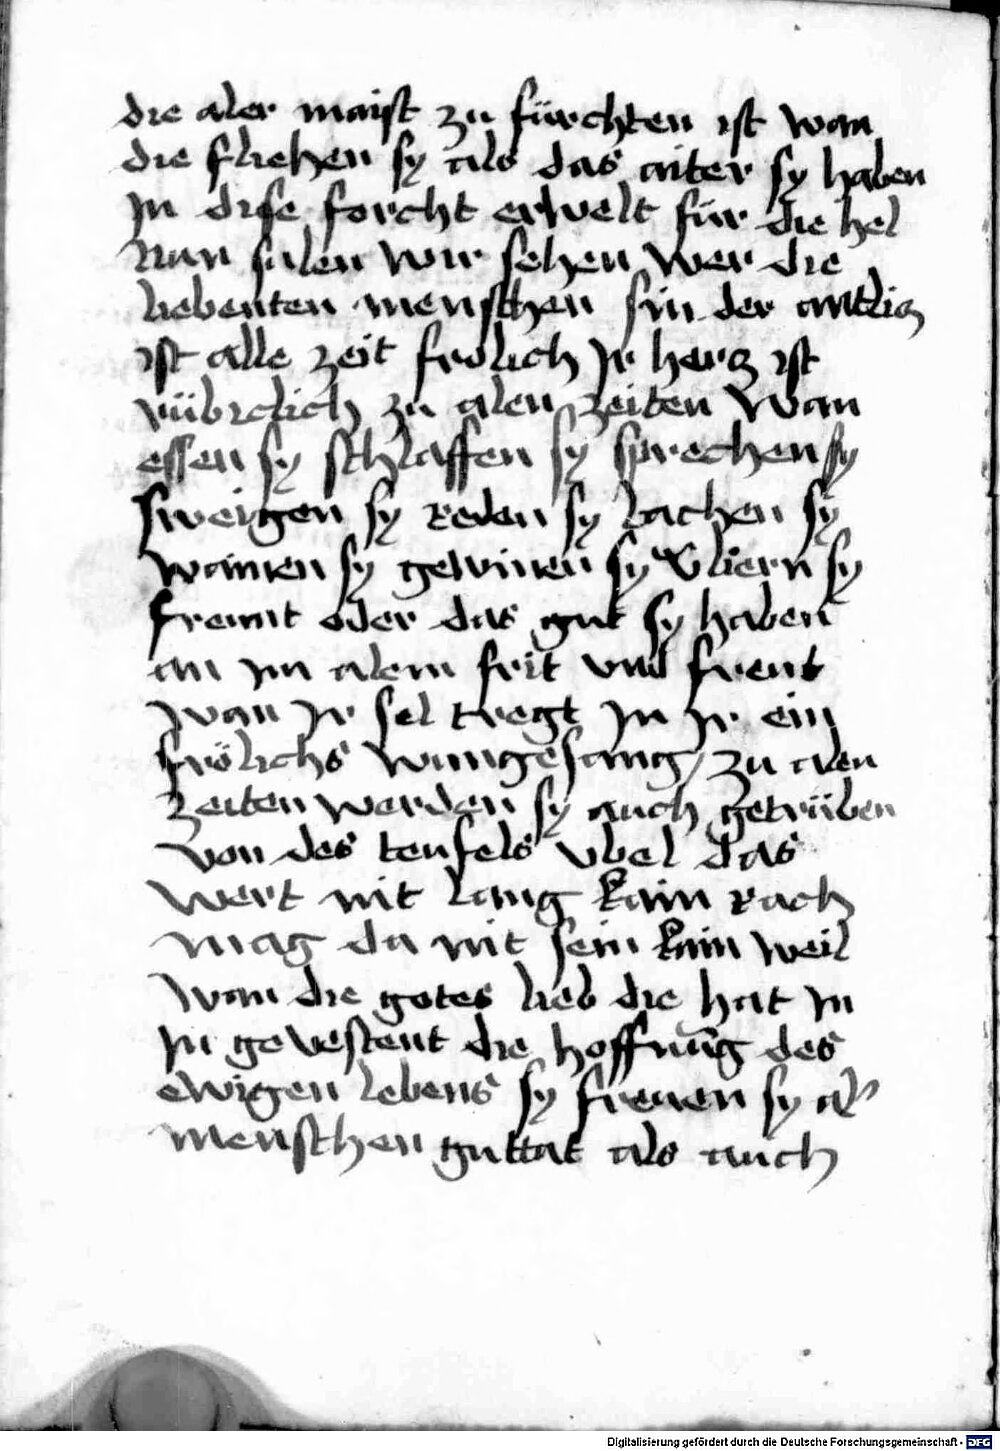 die aler maist zu fürchten ist wan
die fliehen sy als das aiter sy haben
Jn dise forcht erwelt für die hel
Nun sülen wir sehen wer die
liebenten menschen sin der antlicz
ist alle zeit frölich Jr hercz ist
zu alen zeiten Wan
essen sy schlaffen sy sprechen sy
sweigen sy reden sy lachen sy
wainen sy gewinen sy vliern sy
freunt oder das gut sy haben
an Jm alem frit vnd freut
wan Jr sel tregt Jn Jr ein
frölichs wungesang / zu alen
Zeiten werden sy auch getrüben
von des teufels vbel das
wert nit lang kain rach
mag da nit sein kain weil
wan die gotes lieb die hat Jn
Jn gevestent die hoffnūg des
ewigen lebens sy freuen sy al
menschen guttat als auch
Digitalisierung gefördert durch die Deutsche Forschungsgemeinschaft - DFG